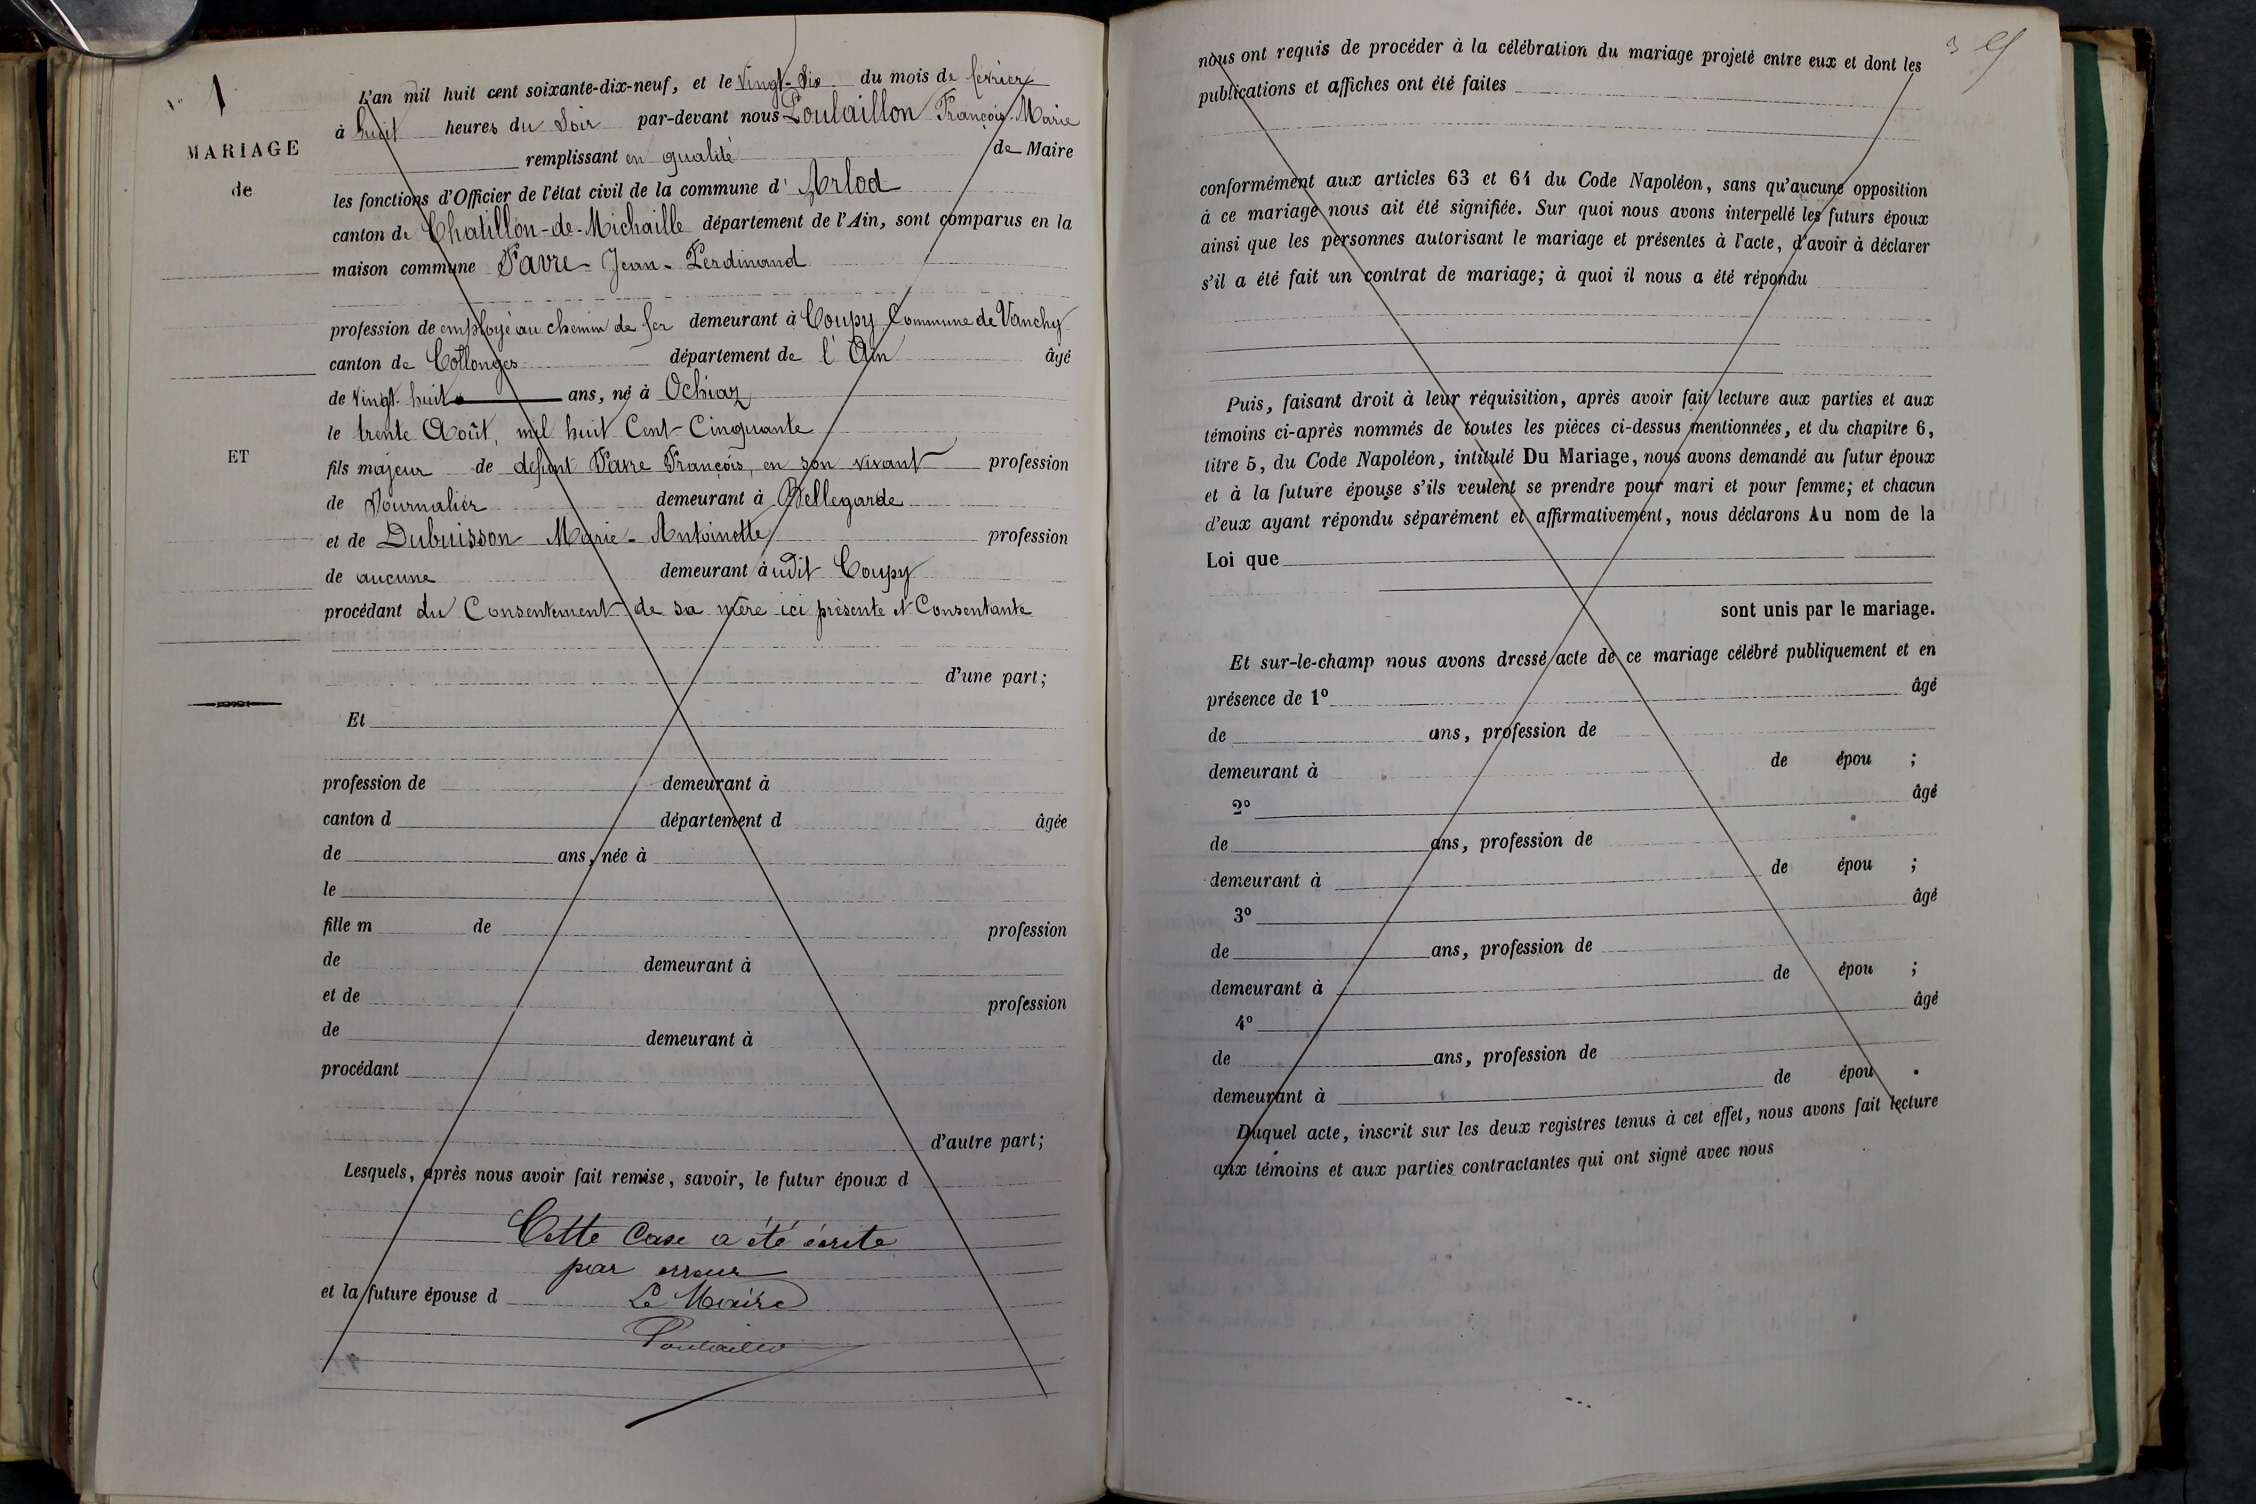 1
MARIAGE
de
ET
L'an mil huit cent soixante-dix-neuf, et le vingt-six du mois de février
à huit heures du soir par-devant nous Poulaillon François-Marie
remplissant en qualité de Maire
les fonctions d'Officier de l'état civil de la commune d' Arlod
canton de Chatillon-de-Michaille département de l'Ain, sont comparus en la
maison commune Favre Jean-Ferdinand
profession de employé au chemin de fer demeurant à Coupy Commune de Vanchy
canton de Collonges département de l'Ain âgé
de vingt-huit ans, né à Ochiaz
le trente Août, mil huit Cent Cinquante
fils majeur de défunt Favre François, en son vivant profession
de Journalier demeurant à Bellegarde
et de Dubuisson Marie-Antoinette profession
de aucune demeurant àudit Coupy
procédant du Consentement de sa mère ici présente et Consentante
d'une part;
Et
profession de demeurant à
canton d département d âgée
de ans, née à
le
fille m de profession
de demeurant à
et de profession
de demeurant à
procédant
d'autre part;
Lesquels, après nous avoir fait remise, savoir, le futur époux d
Cette Case a été écrite
par erreur
et la future épouse d Le Maire
Poulaillon
nous ont requis de procéder à la célébration du mariage projeté entre eux et dont les
publications et affiches ont été faites
conformément aux articles 63 et 64 du Code Napoléon, sans qu'aucune opposition
à ce mariage nous ait été signifiée. Sur quoi nous avons interpellé les futurs époux
ainsi que les personnes autorisant le mariage et présentes à l'acte, d'avoir à déclarer
s'il a été fait un contrat de mariage; à quoi il nous a été répondu
Puis, faisant droit à leur réquisition, après avoir fait lecture aux parties et aux
témoins ci-après nommés de toutes les pièces ci-dessus mentionnées, et du chapitre 6,
titre 5, du Code Napoléon, intitulé Du Mariage, nous avons demandé au futur époux
et à la future épouse s'ils veulent se prendre pour mari et pour femme; et chacun
d'eux ayant répondu séparément et affirmativement, nous déclarons Au nom de la
Loi que
sont unis par le mariage.
Et sur-le-champ nous avons dressé acte de ce mariage célébré publiquement et en
présence de 1º âgé
de ans, profession de
demeurant à de épou ;
2º âgé
de ans, profession de
demeurant à de épou ;
3º âgé
de ans, profession de
demeurant à de épou ;
4º âgé
de ans, profession de
demeurant à de épou .
Duquel acte, inscrit sur les deux registres tenus à cet effet, nous avons fait lecture
aux témoins et aux parties contractantes qui ont signé avec nous